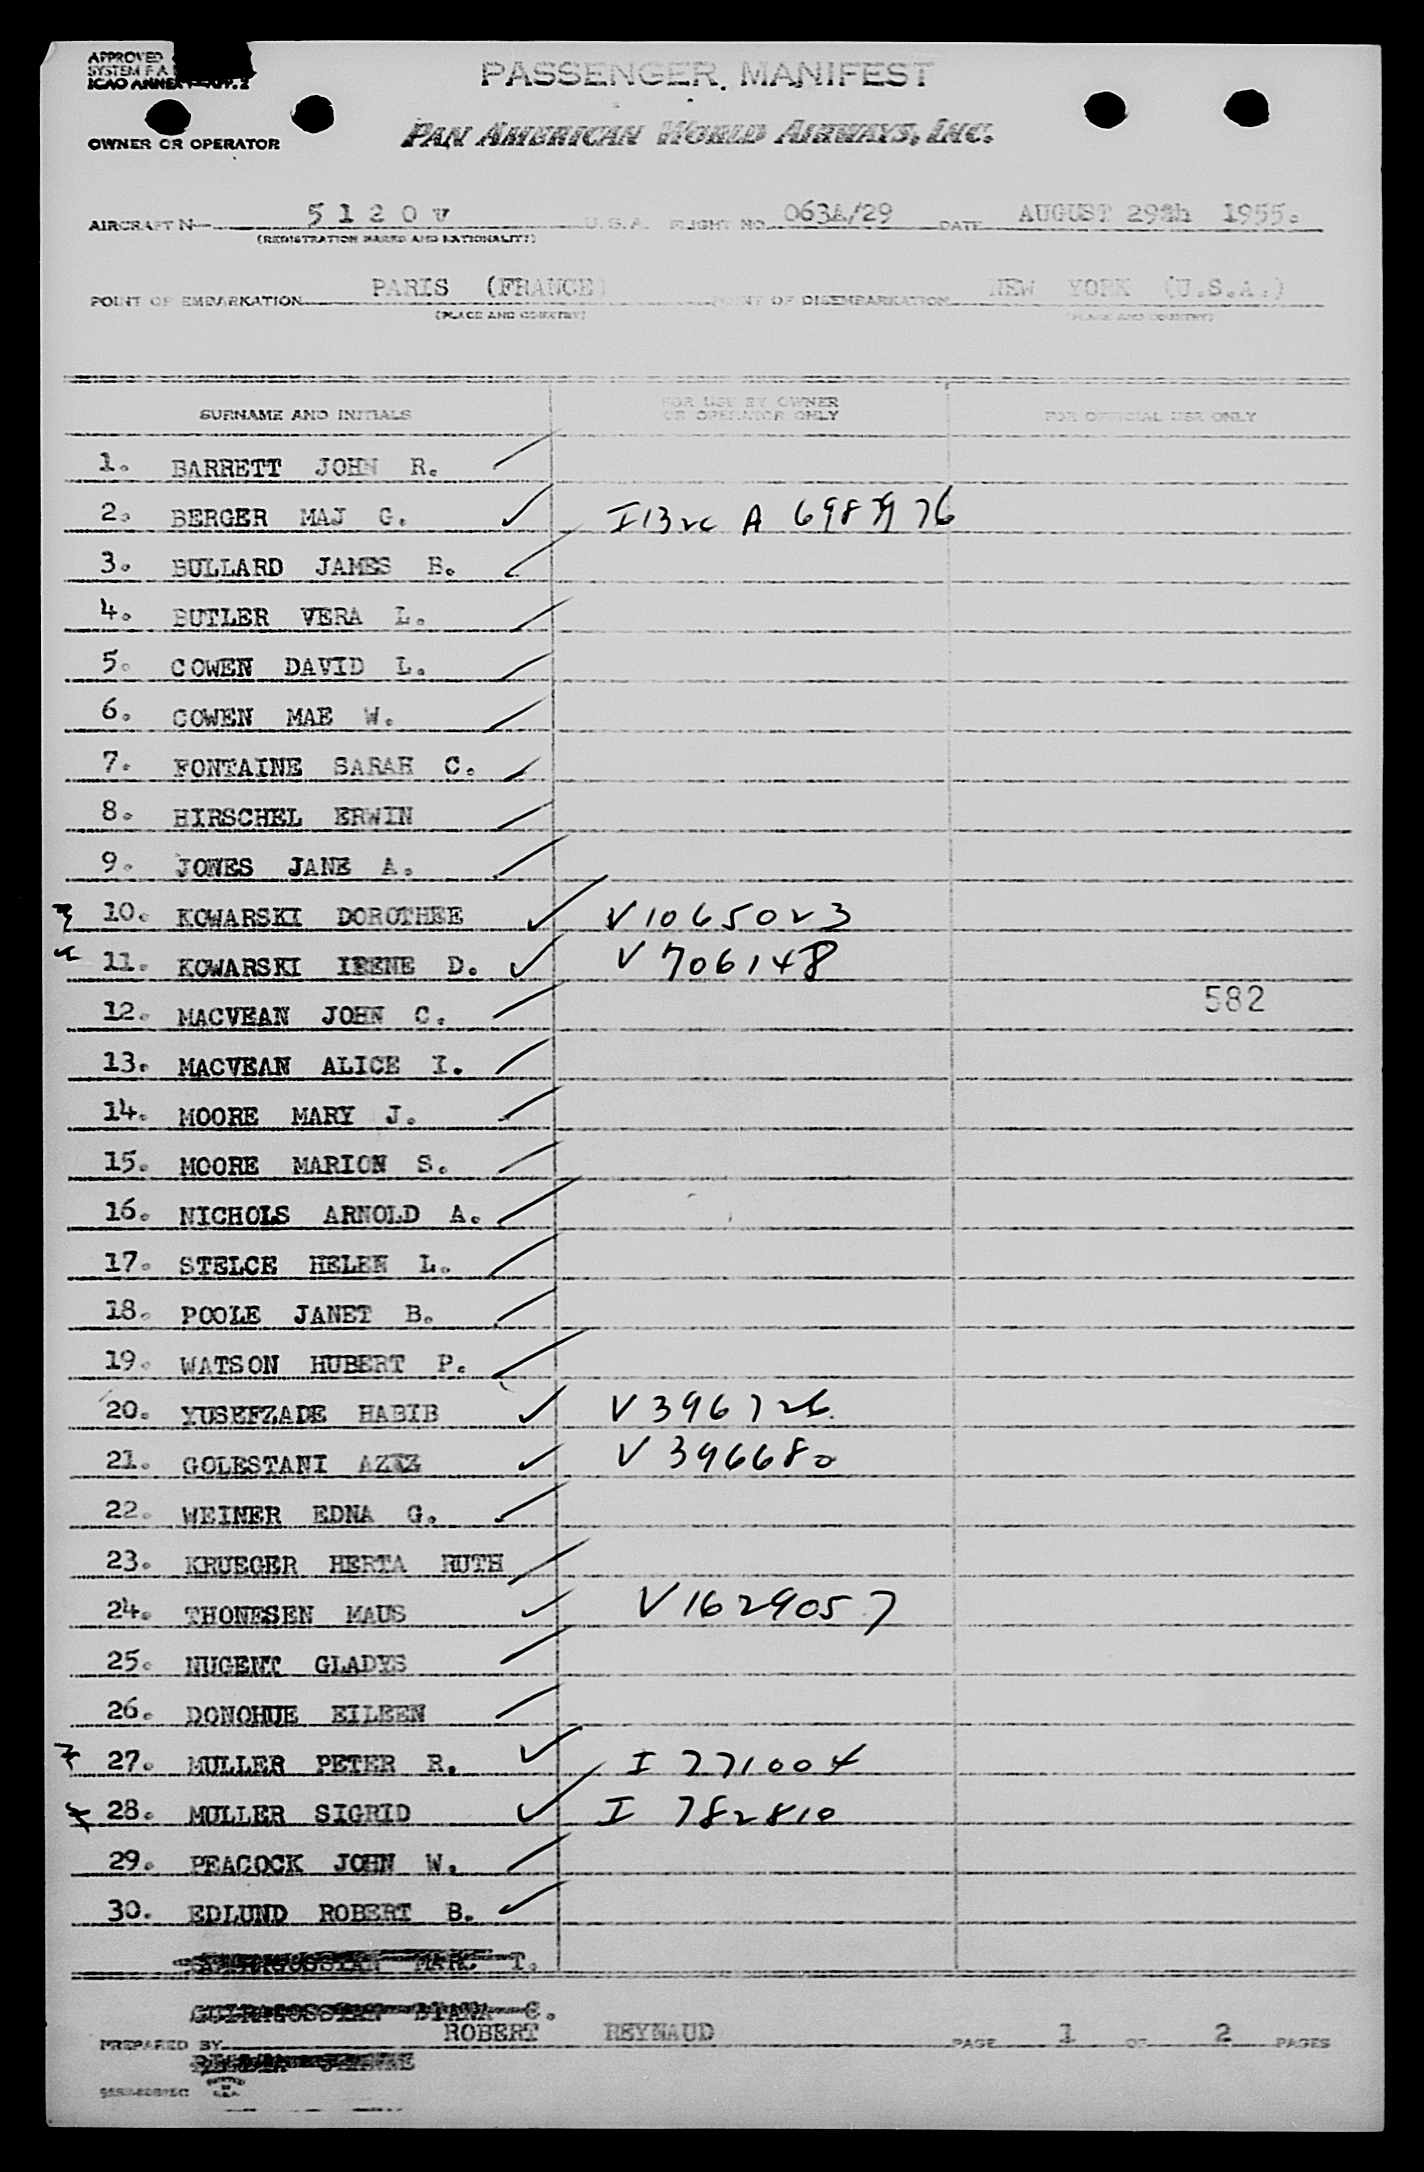 APPROVED
SYSTEM F.A.
ICAO ANNEX
PASSENGER MANIFEST
OWNER OR OPERATOR
PAN AMERICAN WORLD AIRWAYS, INC.
AIRCRAFT N 5120V U.S.A. FLIGHT NO. 063A/29 DATE AUGUST 29th 1955.
(REGISTRATION MARKS AND NATIONALITY)
POINT OF EMBARKATION PARIS (FRANCE) POINT OF DISEMBARKATION NEW YORK (U.S.A.)
(PLACE AND COUNTRY) (PLACE AND COUNTRY)
SURNAME AND INITIALS FOR USE BY OWNER OR OPERATOR ONLY FOR OFFICIAL USE ONLY
1. BARRETT JOHN R.
2. BERGER MAJ G. A 698
3. BULLARD JAMES B.
4. BUTLER VERA L.
5. COWEN DAVID L.
6. COWEN MAE W.
7. FONTAINE SARAH C.
8. HIRSCHEL ERWIN
9. JONES JANE A.
10. KOWARSKI DOROTHEE V1065023
11. KOWARSKI IRENE D. V 706148
12. MACVEAN JOHN C. 582
13. MACVEAN ALICE I.
14. MOORE MARY J.
15. MOORE MARION S.
16. NICHOLS ARNOLD A.
17. STELCE HELEN L.
18. POOLE JANET B.
19. WATSON HUBERT P.
20. YUSEFZADE HABIB V 396726
21. GOLESTANI AZIZ V 396680
22. WEINER EDNA G.
23. KRUEGER HERTA RUTH
24. THONESEN MAUS V 1629057
25. NUGENT GLADYS
26. DONOHUE EILEEN
27. MULLER PETER R. I 771004
28. MULLER SIGRID I 782810
29. PEACOCK JOHN W.
30. EDLUND ROBERT B.
T.
C.
PREPARED BY ROBERT REYNAUD PAGE 1 OF 2 PAGES
PRINTED IN U.S.A.